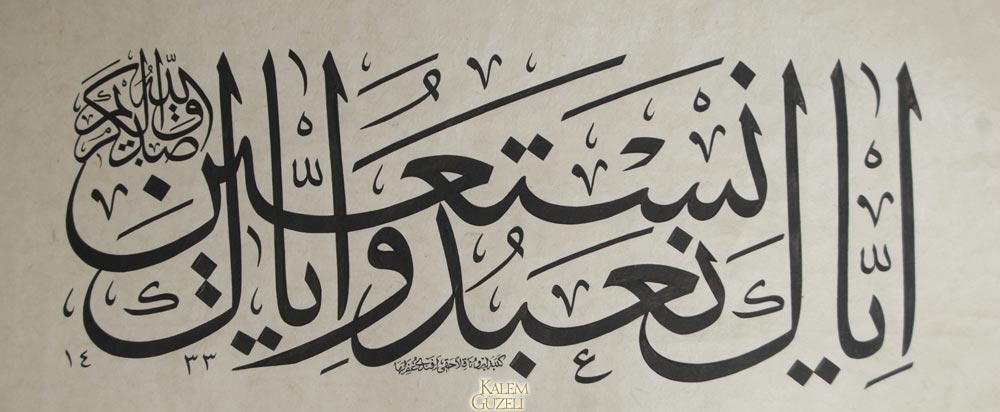 اِيَّاكَ نَعْبُدُ وَاِيَّاكَ نَسْتَعِينُ
صدق الله الكريم
١٤٣٣
KALEM
GUZELI